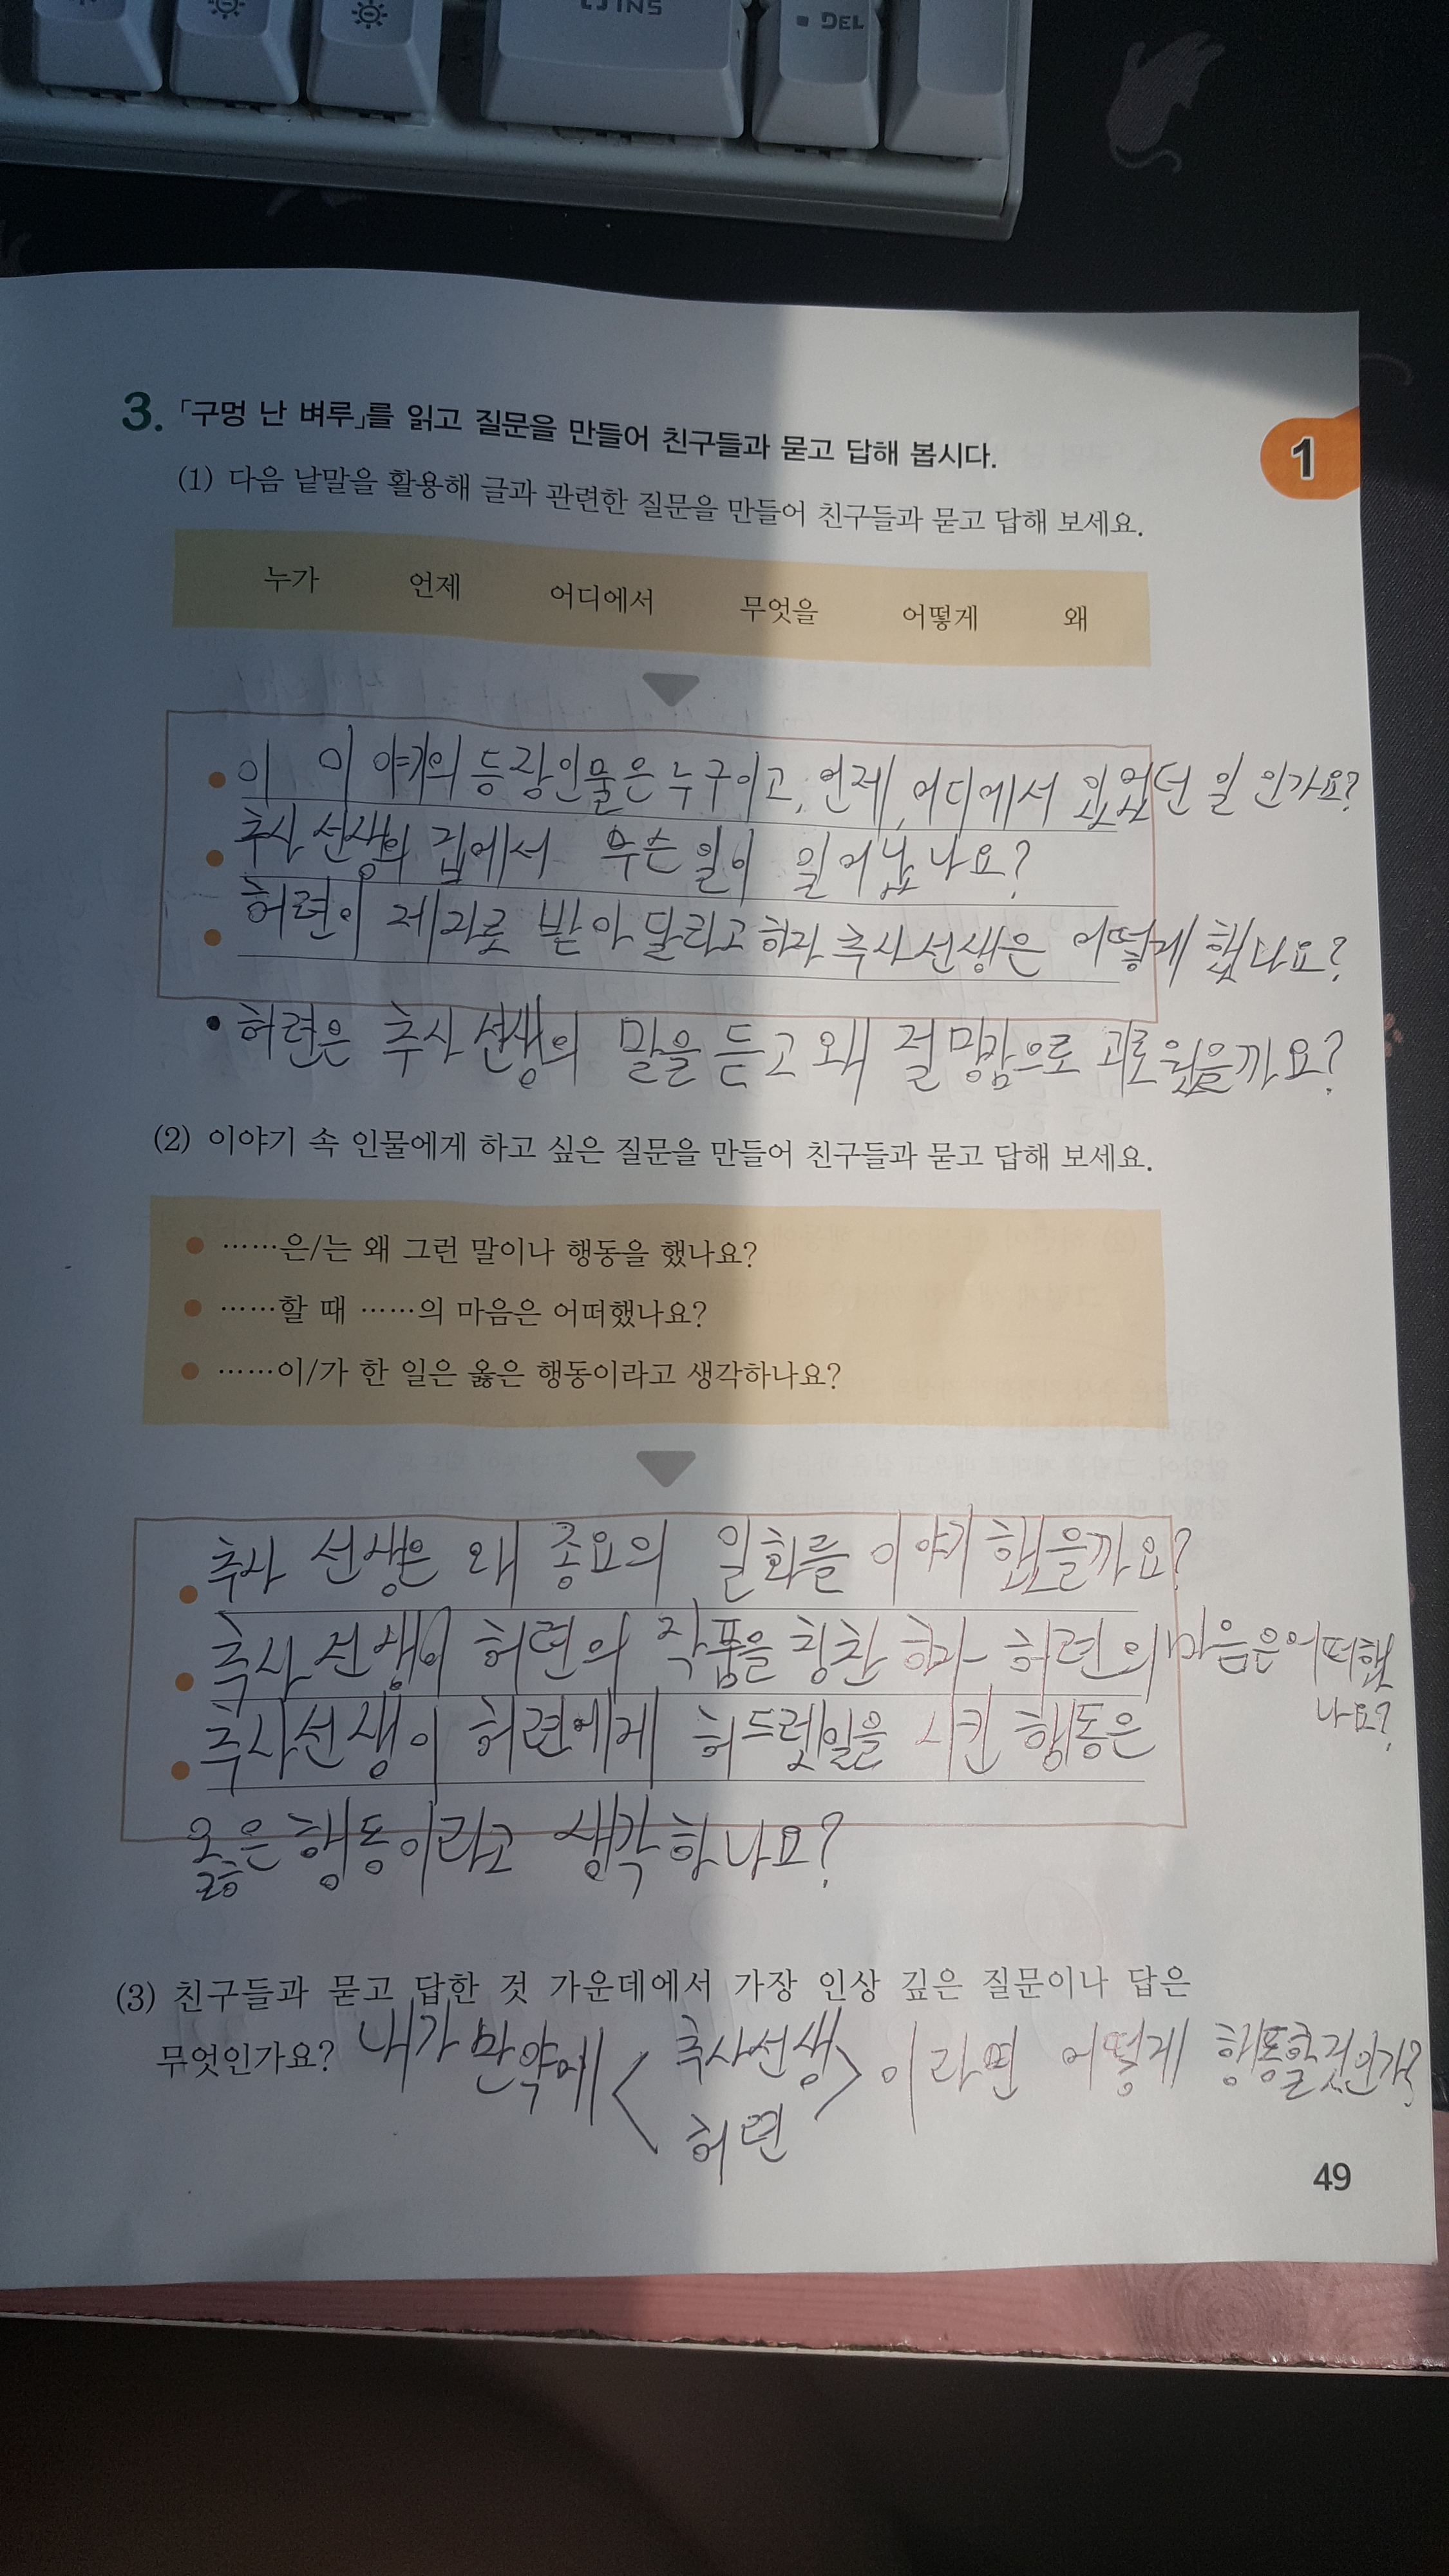 INS
DEL
3. 「구멍 난 벼루」를 읽고 질문을 만들어 친구들과 묻고 답해 봅시다.
1
(1) 다음 낱말을 활용해 글과 관련한 질문을 만들어 친구들과 묻고 답해 보세요.
누가 언제 어디에서 무엇을 어떻게 왜
● 이 이야기의 등장인물은 누구이고, 언제, 어디에서 있었던 일 인가요?
● 추사 선생의 집에서 무슨 일이 일어났나요?
● 허련이 제자로 받아 달라고 하자 추사 선생은 어떻게 했나요?
• 허련은 추사 선생의 말을 듣고 왜 절망감으로 괴로웠을까요?
(2) 이야기 속 인물에게 하고 싶은 질문을 만들어 친구들과 묻고 답해 보세요.
● ……은/는 왜 그런 말이나 행동을 했나요?
● ……할 때 ……의 마음은 어떠했나요?
● ……이/가 한 일은 옳은 행동이라고 생각하나요?
● 추사 선생은 왜 종요의 일화를 이야기 했을까요?
● 추사 선생이 허련의 작품을 칭찬 하자 허련의 마음은 어떠했
나요?
● 추사선생이 허련에게 허드렛일을 시킨 행동은
옳은 행동이라고 생각하나요?
(3) 친구들과 묻고 답한 것 가운데에서 가장 인상 깊은 질문이나 답은
무엇인가요? 내가 만약에 < 추사선생 > 이라면 어떻게 행동할것인가?
허련
49